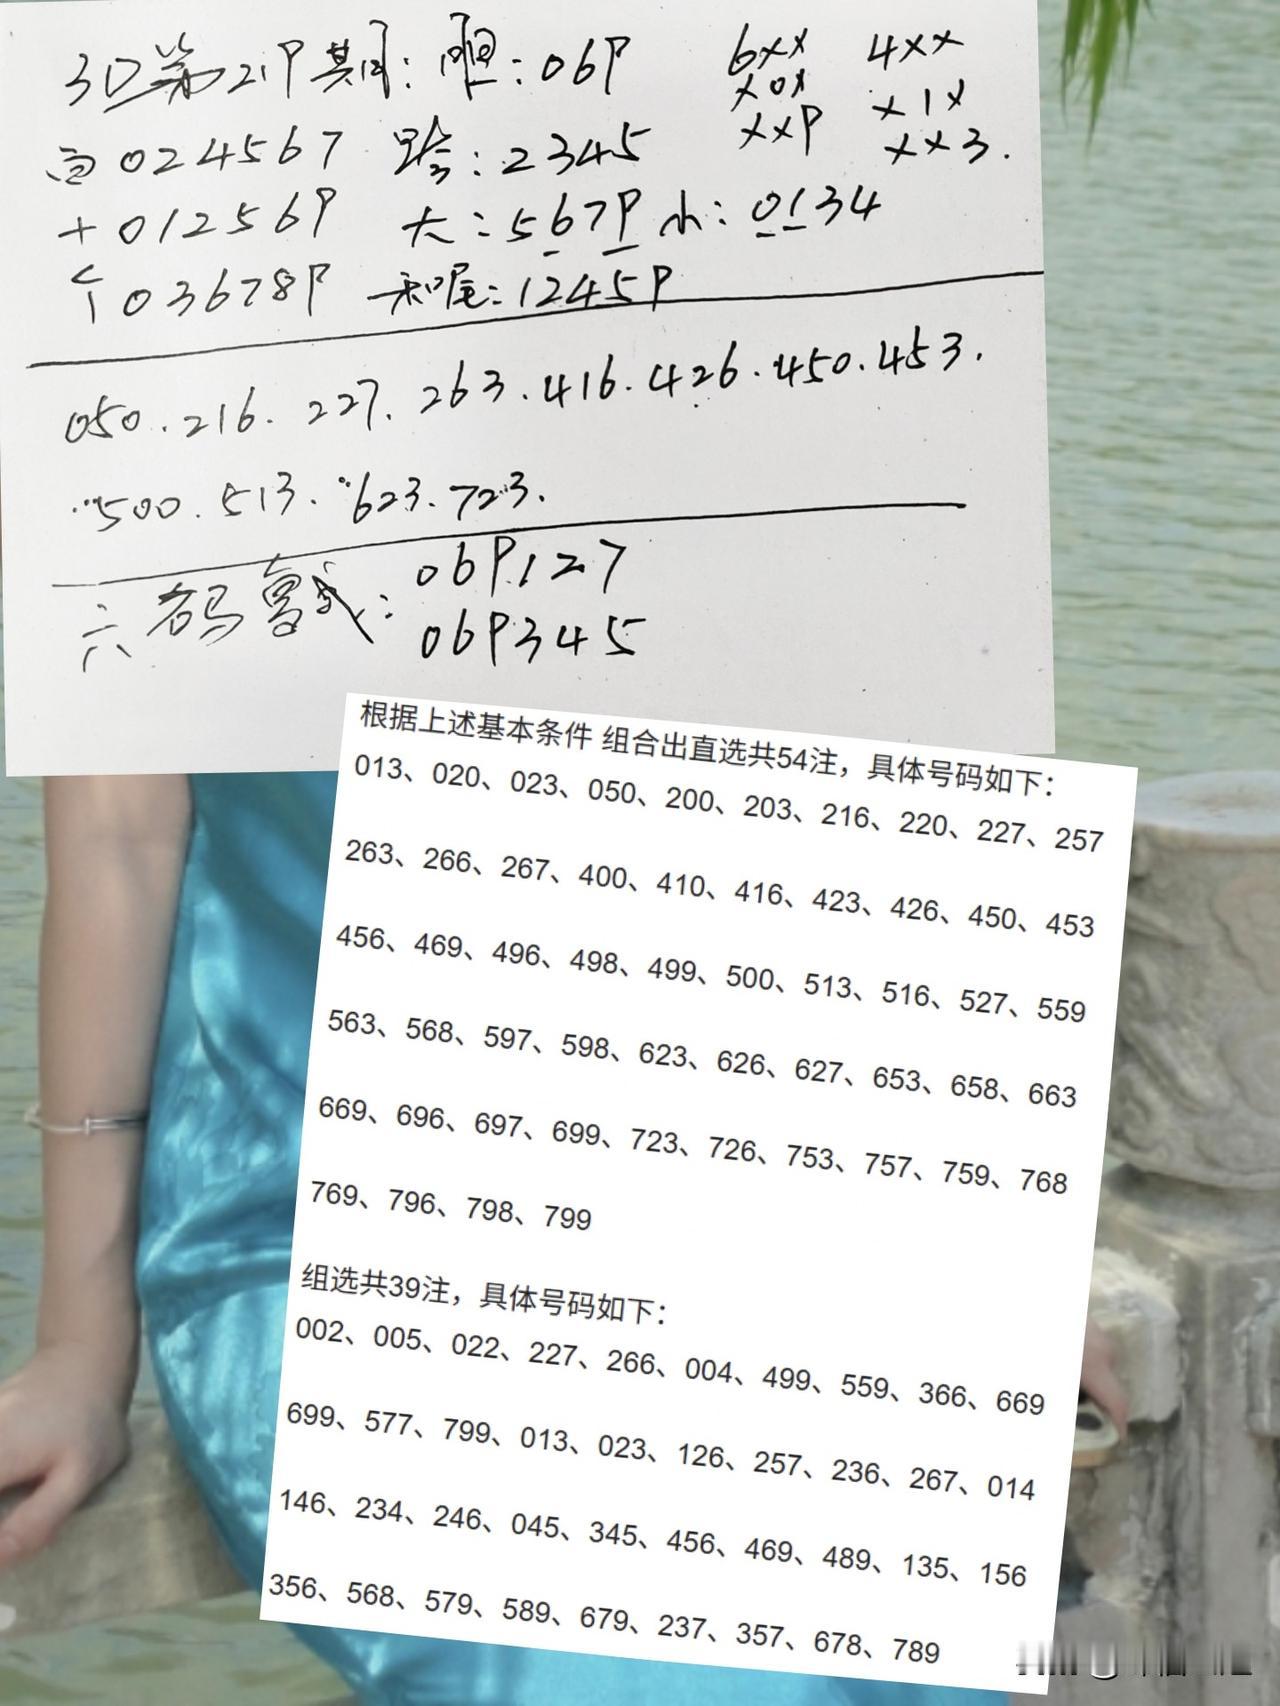 3D第219期: 胆: 069 6xx 4xx
x0x x1x
xx9 xx3.
百024567 跨: 2345
十012569 大: 5679 小: 0134
个036789 和尾: 12459
050.216.227.263.416.426.450.453.
500.513.623.723.
六码复式: 069127
069345
根据上述基本条件 组合出直选共54注，具体号码如下：
013、020、023、050、200、203、216、220、227、257
263、266、267、400、410、416、423、426、450、453
456、469、496、498、499、500、513、516、527、559
563、568、597、598、623、626、627、653、658、663
669、696、697、699、723、726、753、757、759、768
769、796、798、799
组选共39注，具体号码如下：
002、005、022、227、266、004、499、559、366、669
699、577、799、013、023、126、257、236、267、014
146、234、246、045、345、456、469、489、135、156
356、568、579、589、679、237、357、678、789